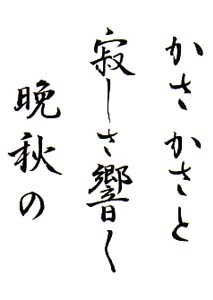 かさかさと
寂しさ響く
晩秋の